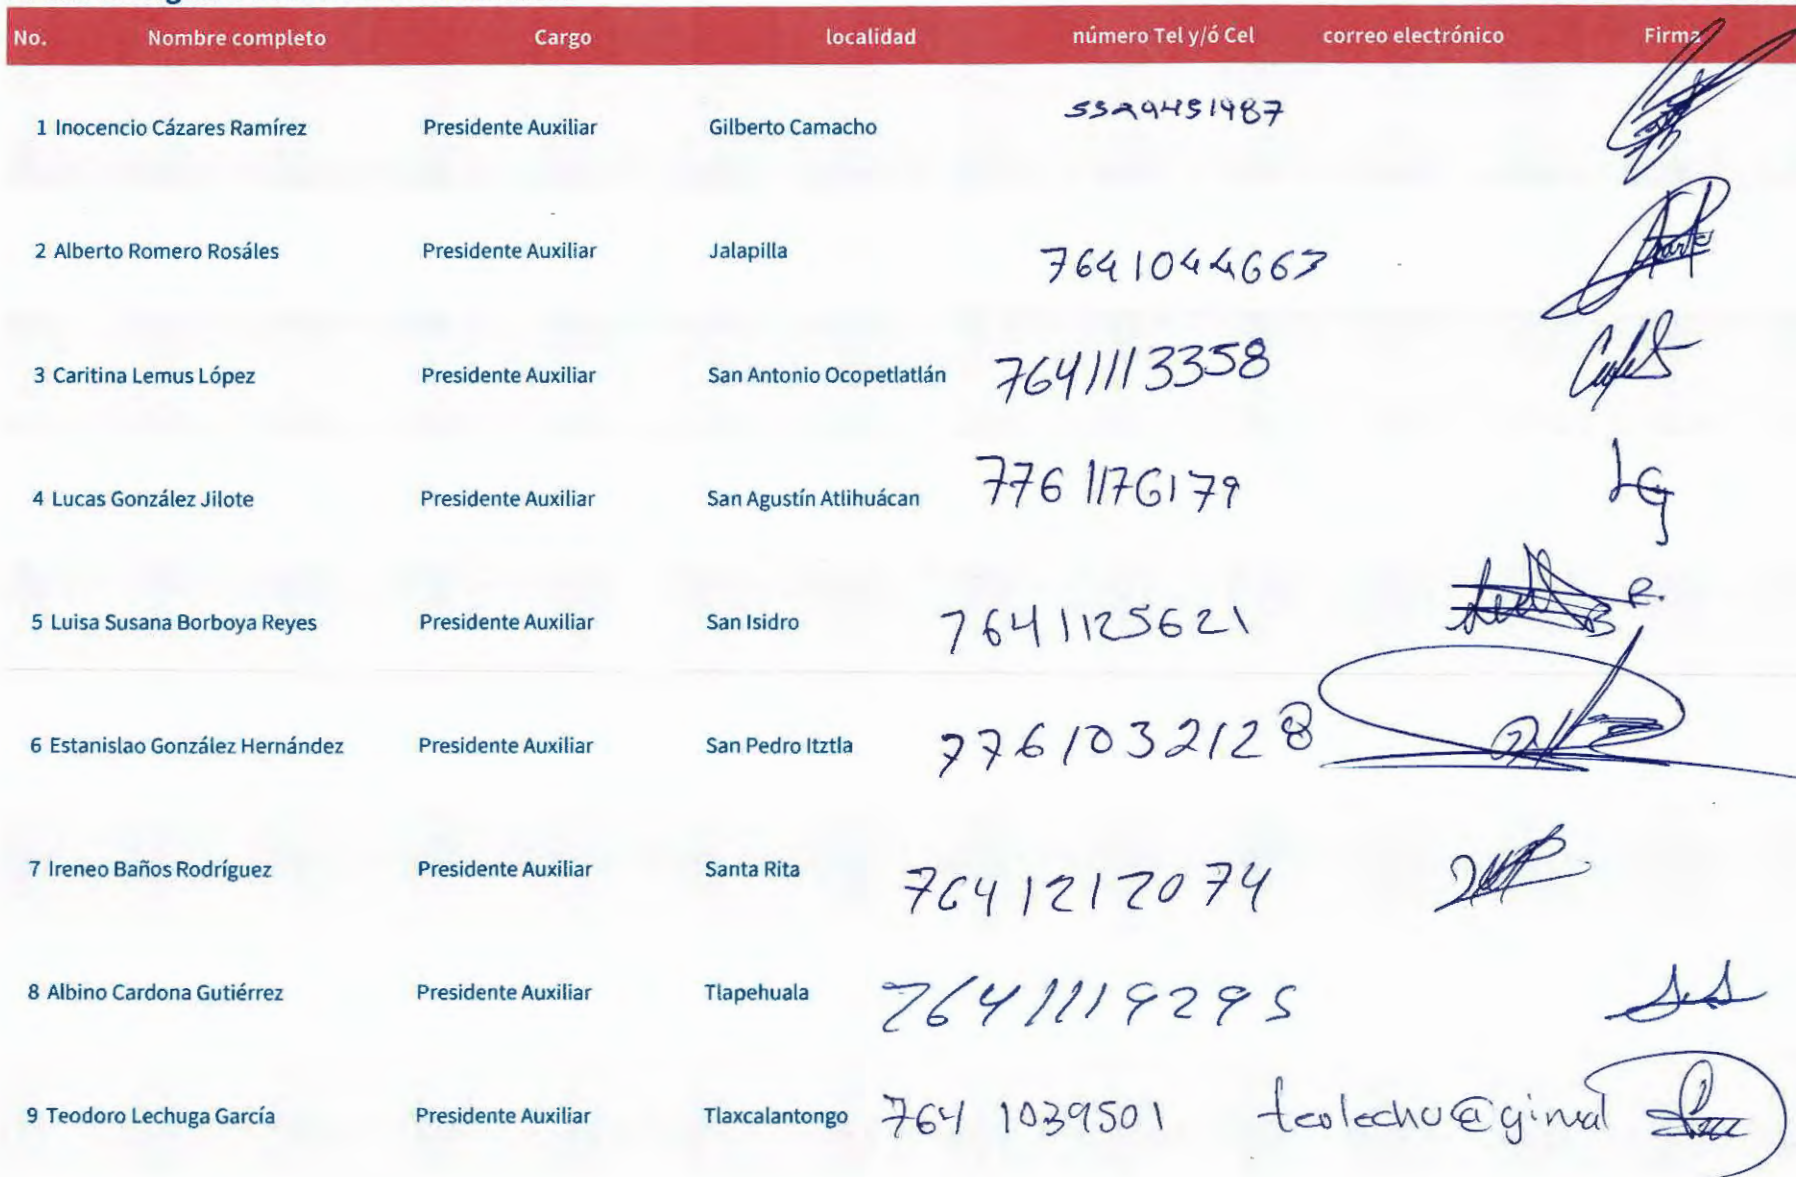 No. Nombre completo Cargo localidad número Tel y/ó Cel correo electrónico Firma
1 Inocencio Cázares Ramírez Presidente Auxiliar Gilberto Camacho 5529451987
2 Alberto Romero Rosáles Presidente Auxiliar Jalapilla 7641044663
3 Caritina Lemus López Presidente Auxiliar San Antonio Ocopetlatlán 7641113358
4 Lucas González Jilote Presidente Auxiliar San Agustín Atlihuácan 7761176179 LG
5 Luisa Susana Borboya Reyes Presidente Auxiliar San Isidro 7641125621
6 Estanislao González Hernández Presidente Auxiliar San Pedro Itztla 7761032128
7 Ireneo Baños Rodríguez Presidente Auxiliar Santa Rita 7641212074
8 Albino Cardona Gutiérrez Presidente Auxiliar Tlapehuala 7641119295
9 Teodoro Lechuga García Presidente Auxiliar Tlaxcalantongo 764 1039501